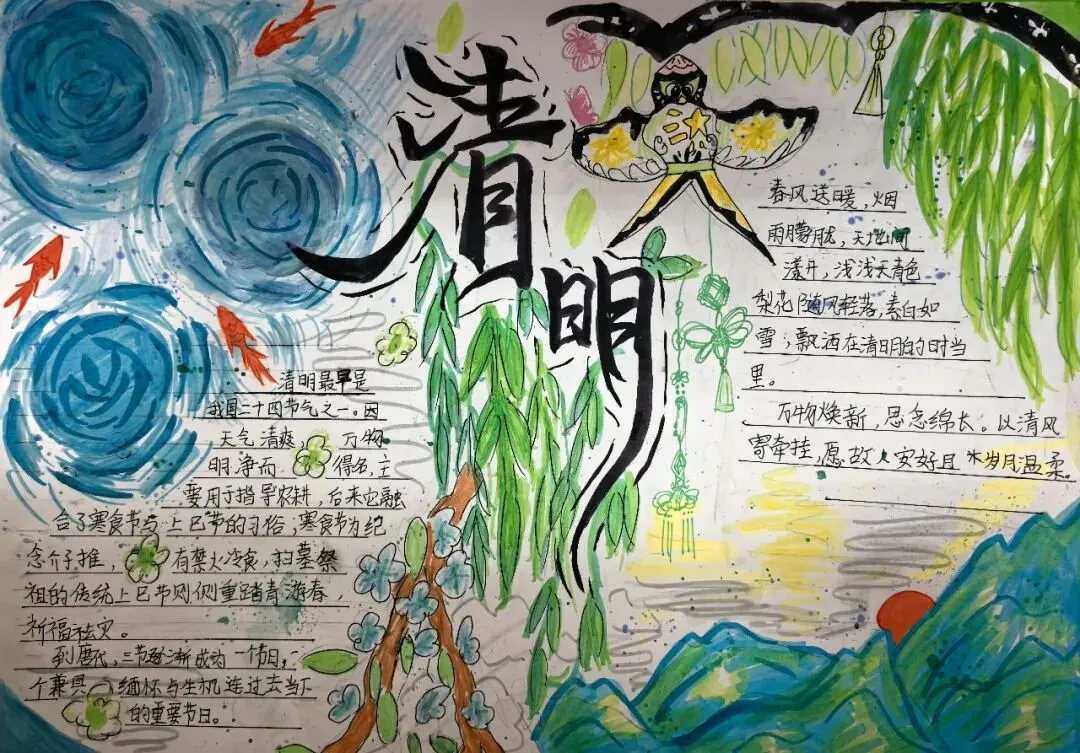 清明
清明最早是
我国二十四节气之一。因
天气清爽,万物
明净而得名,主
要用于指导农耕,后来它融
合了寒食节与上巳节的习俗,寒食节为纪
念介子推,有禁火冷食,扫墓祭
祖的传统上巳节则侧重踏青游春,
祈福祛灾。
到唐代,三节逐渐成为一个节日,一
个兼具缅怀与生机连过去当下
的重要节日。
春风送暖,烟
雨朦胧,天地间
漾开,浅浅天青色
梨花随风轻落,素白如
雪;飘洒在清明的时当
里。
万物焕新,思念绵长。以清风
寄牵挂,愿故人安好且岁月温柔。